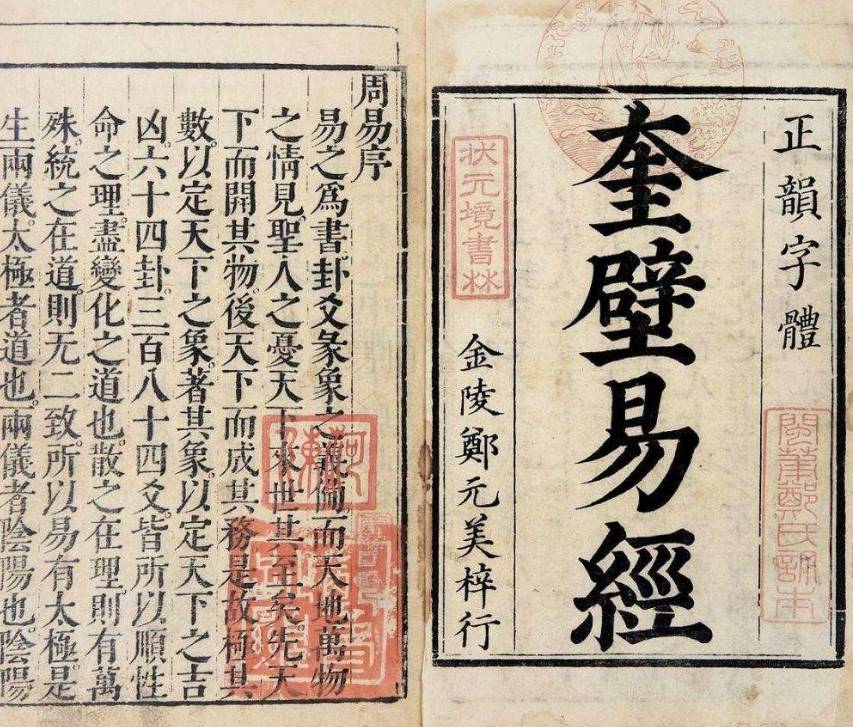 正韻字體
奎壁易經
状元境書林
金陵鄭元美梓行
周易序
易之爲書。卦爻彖象之義備。而天地萬物
之情見。聖人之憂天下來世。其至矣。先天
下而開其物。後天下而成其務。是故極其
數。以定天下之象。著其象。以定天下之吉
凶。六十四卦。三百八十四爻。皆所以順性
命之理。盡變化之道也。散之在理。則有萬
殊。統之在道。則无二致。所以易有太極。是
生兩儀。太極者道也。兩儀者陰陽也。陰陽